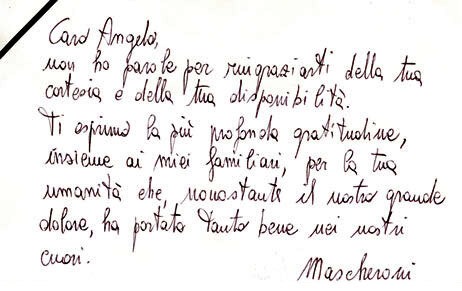 Caro Angelo,
non ho parole per ringraziarti della tua
cortesia e della tua disponibilità.
Ti esprimo la più profonda gratitudine,
insieme ai miei familiari, per la tua
umanità che, nonostante il nostro grande
dolore, ha portato tanto bene nei nostri
cuori.
Mascheroni